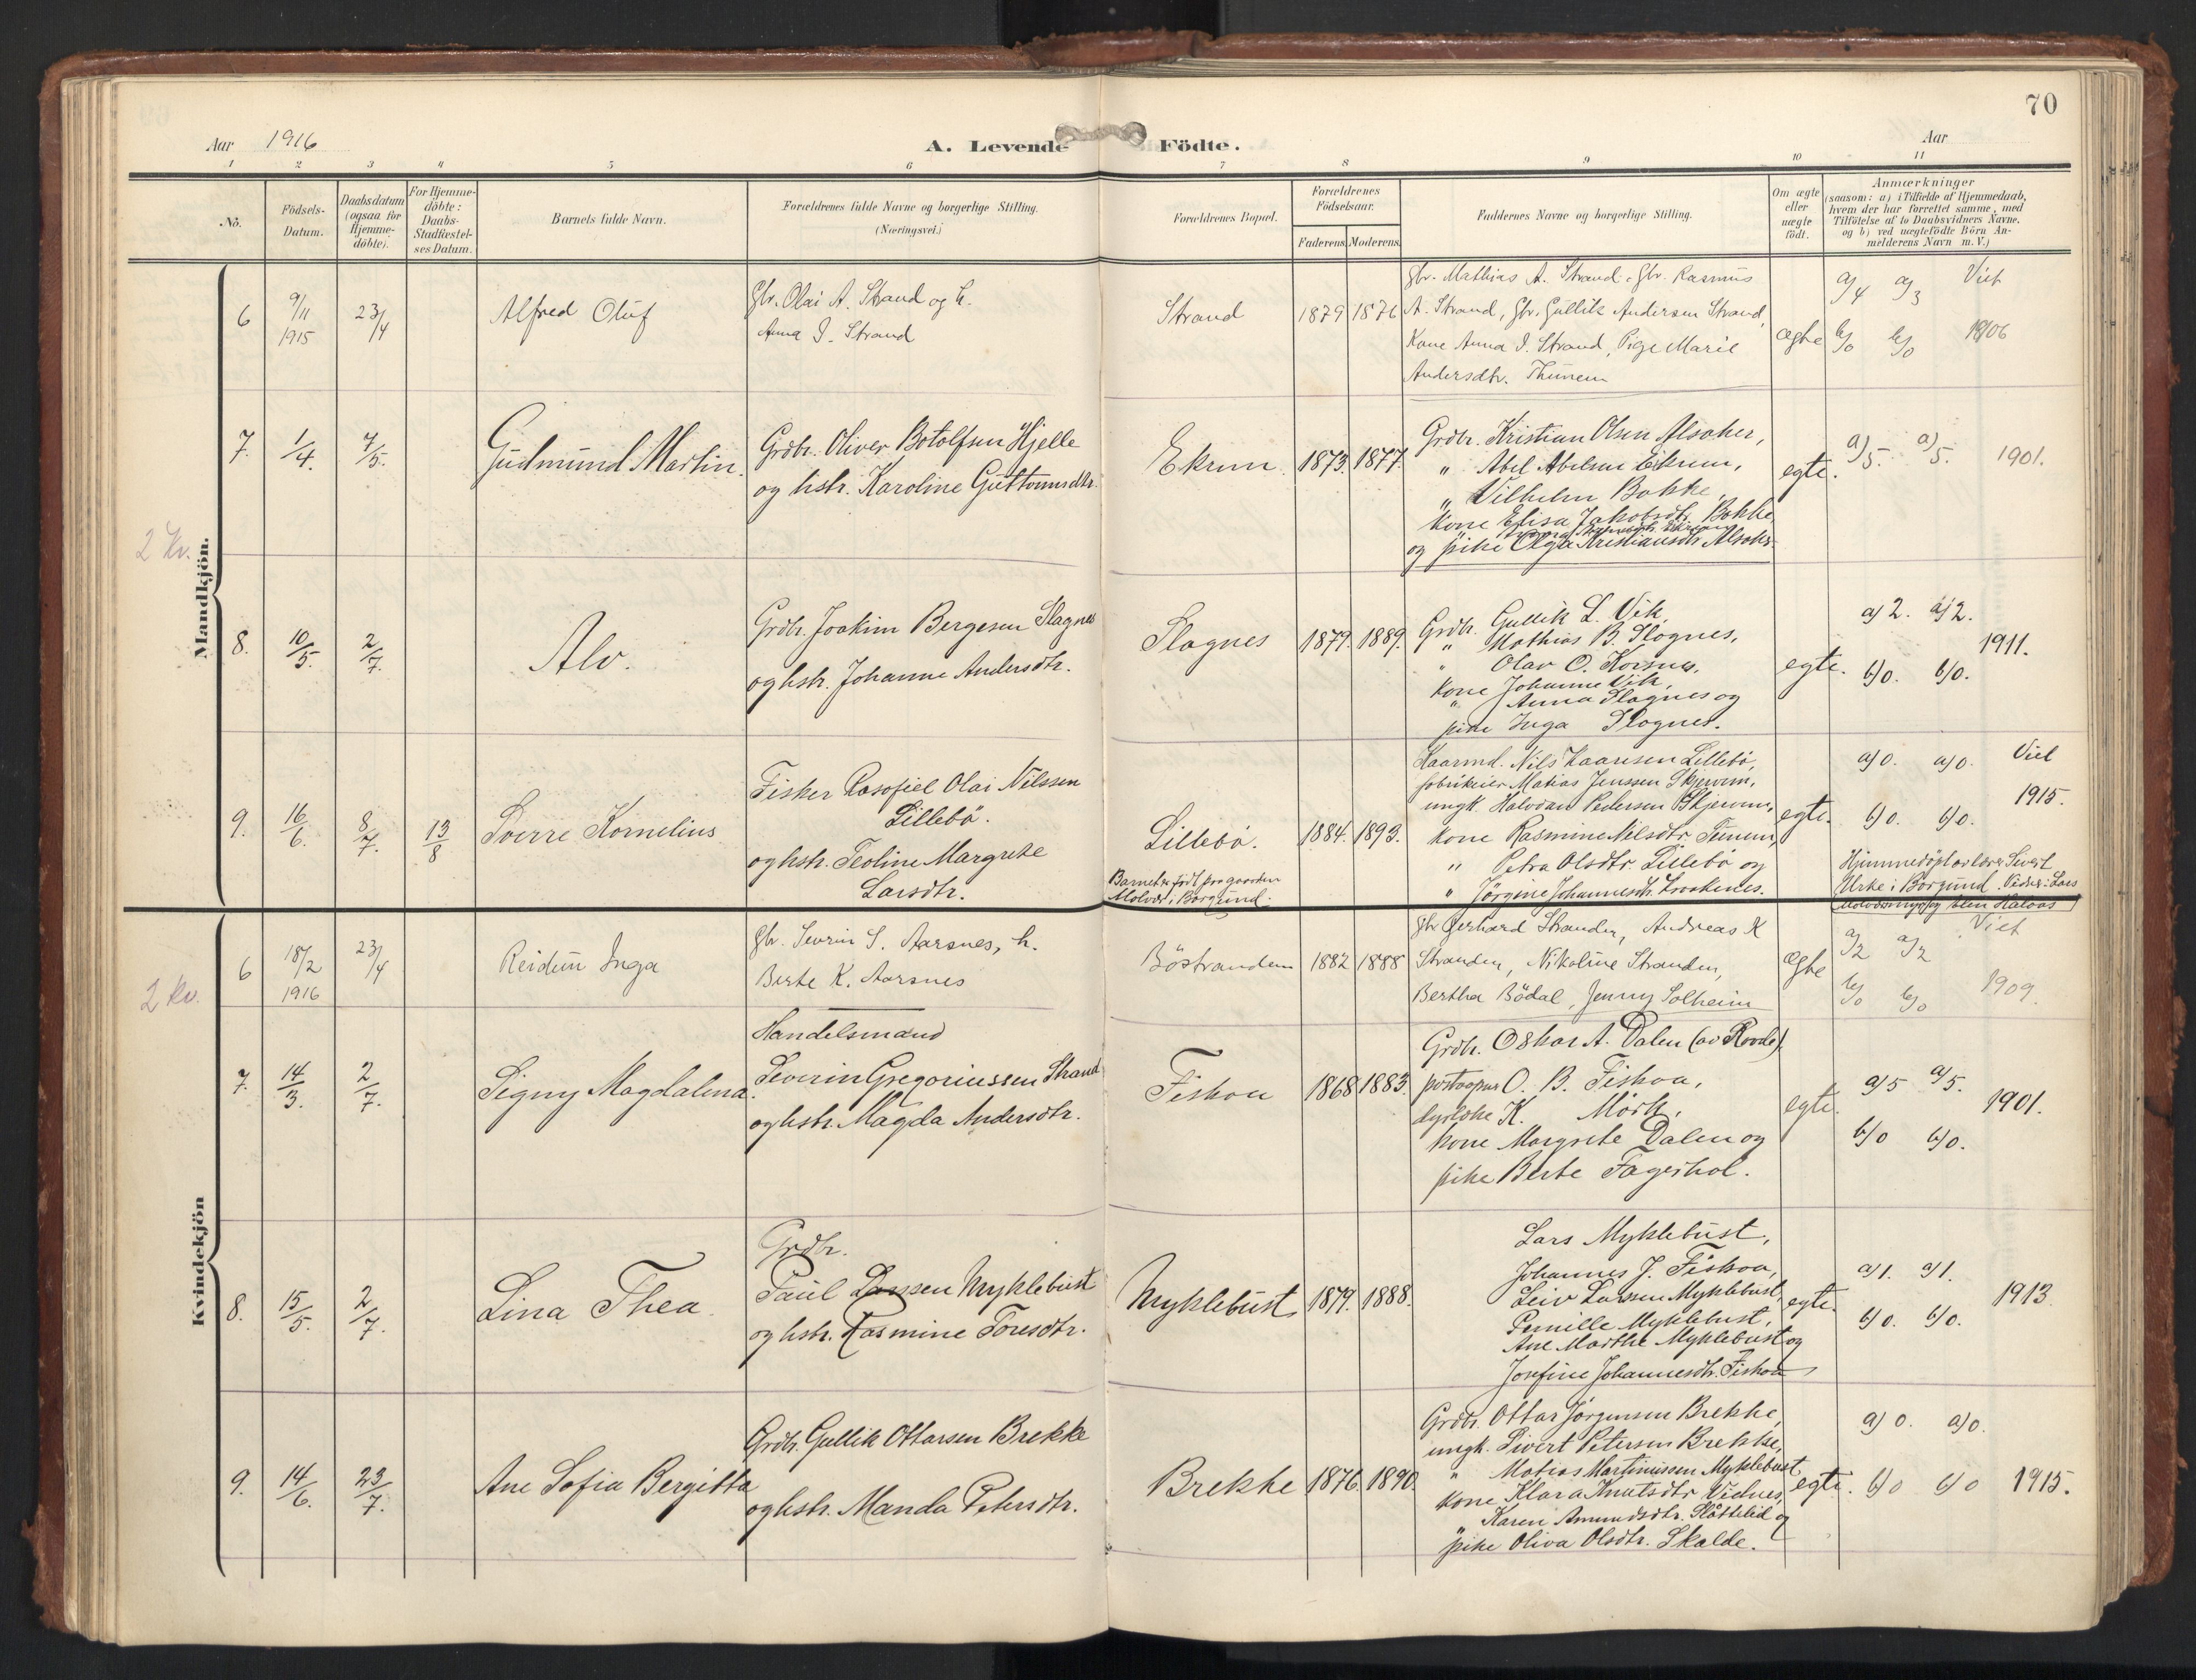 70
Aar 1916
A. Levende Födte.
Aar
1 2 3 4 5 6 7 8 9 10 11
No.
Födsels-
Datum.
Daabsdatum
(ogsaa for
Hjemme-
döbte).
For Hjemme-
döbte:
Daabs-
Stadfæstel-
ses Datum.
Barnets fulde Navn.
Forældrenes fulde Navne og borgerlige Stilling.
(Næringsvei.)
Forældrenes Bopæl.
Forældrenes
Födselsaar.
Faderens. Moderens.
Faddernes Navne og borgerlige Stilling.
Om ægte
eller
uægte
födt.
Anmærkninger
(saasom: a) i Tilfælde af Hjemmedaab,
hvem der har forrettet samme, med
Tilföielse af to Daabsvidners Navne,
og b) ved uægtefödte Börn An-
melderens Navn m. V.)
Mandkjön.
2 kv.
6
9/11
1915
23/4
Alfred Oluf
Gbr. Olai A. Strand og h.
Anna I. Strand
Strand
1879 1876
Gbr. Mathias A. Strand, Gbr. Rasmus
A. Strand, Gbr. Gullik Andersen Strand,
Kone Anna I. Strand, Pige Marie
Andersdtr. Thunem
ægte
a/4 a/3 Viet
b/0 b/0 1906
7.
1/4.
7/5.
Gudmund Martin.
Grdbr. Oliver Botolfsen Hjelle
og hstr. Karoline Guttormsdtr.
Ekrem
1873. 1877.
Grdbr. Kristian Olsen Alsaker,
" Abel Abelsen Ekrem,
" Vilhelm Bakke,
kone Elisa Jakobsdtr. Bakke
og pike Olga Kristiansdtr Alsaker
egte.
a)5. a)5. 1901.
8.
10/5.
2/7.
Alv.
Grdbr. Joakim Bergesen Slagnes
og hstr. Johanne Andersdtr.
Slagnes
1879. 1889.
Grdbr. Gullik L. Vik,
" Mathias B. Slagnes,
" Olav O. Korsnes,
kone Johanne Vik,
" Anna Slagnes og
pike Inga Slagnes.
egte.
a) 2. a) 2.
1911.
b)0. b)0.
9.
16/6.
8/7.
13/8
Sverre Kornelius
Fisker Rasofiel Olai Nilssen
Lillebö.
og hstr. Teoline Margrete
Larsdtr.
Lillebö.
Barnet er födt paa gaarden
Molvær i Borgund.
1884. 1893.
Kaarmd. Nils Kaaresen Lillebö,
fabrikeier Matias Jenssen Skjervem,
ungk. Halvdan Pedersen Skjervem,
kone Rasmine Nilsdtr. Tunem,
" Petra Olsdtr. Lillebö og
" Jørgine Johannesdtr.
egte.
a)0. a)0. Viet
1915.
b)0. b)0.
Hjemmedöpt av lærer Sivert
Urke i Borgund. Vidner: Lars
Kvindekjön
2 kv.
6
18/2
1916
23/4
Reidun Inga
Gbr. Sevrin S. Aarsnes, h.
Berte K. Aarsnes
Böstranden
1882 1888
Gbr Gerhard Stranden, Andreas K
Stranden, Nikoline Stranden,
Bertha Bödal, Jenny Solheim
Ægte
a/2 a/2 Viet
b/0 b/0 1909.
7.
14/3.
2/7.
Signy Magdalena.
Handelsmand
Severin Gregoriussen Strand
og hstr. Magda Andersdtr.
Fiskaa
1868 1883.
Grdbr. Oskar A. Dalen (av Rovde),
postopnr O. B. Fiskaa,
dyrlæke K. Mörk,
kone Margrete Dalen og
pike Berte Fagerhol.
egte.
a)5 a)5.
1901.
b)0 b)0.
8.
15/5.
2/7.
Lina Thea
Grdbr.
Paul Larssen Myklebust
og hstr. Rasmine Toresdtr.
Myklebust
1879. 1888.
Lars Myklebust,
Johannes J. Fiskaa,
Leiv Larssen Myklebust,
Pernille Myklebust,
Ane Marthe Myklebust og
Josefine Johannesdtr. Fiskaa
egte.
a)1. a)1.
1913.
b)0. b)0.
9.
14/6.
23/7.
Ane Sofia Bergitta
Grdbr. Gullik Ottarsen Brekke
og hstr. Manda Petersdtr.
Brekke
1876. 1890.
Grdbr. Ottar Jørgensen Brekke,
ungk. Sivert Petersen Brekke,
" Matias Martinussen Myklebust
kone Klara Knutsdtr Vidnes,
" Karen Amundsdtr. Slåttelid og
pike Oliva Olsdtr. Skalde.
egte.
a) 0. a)0.
b)0 b)0 1915.